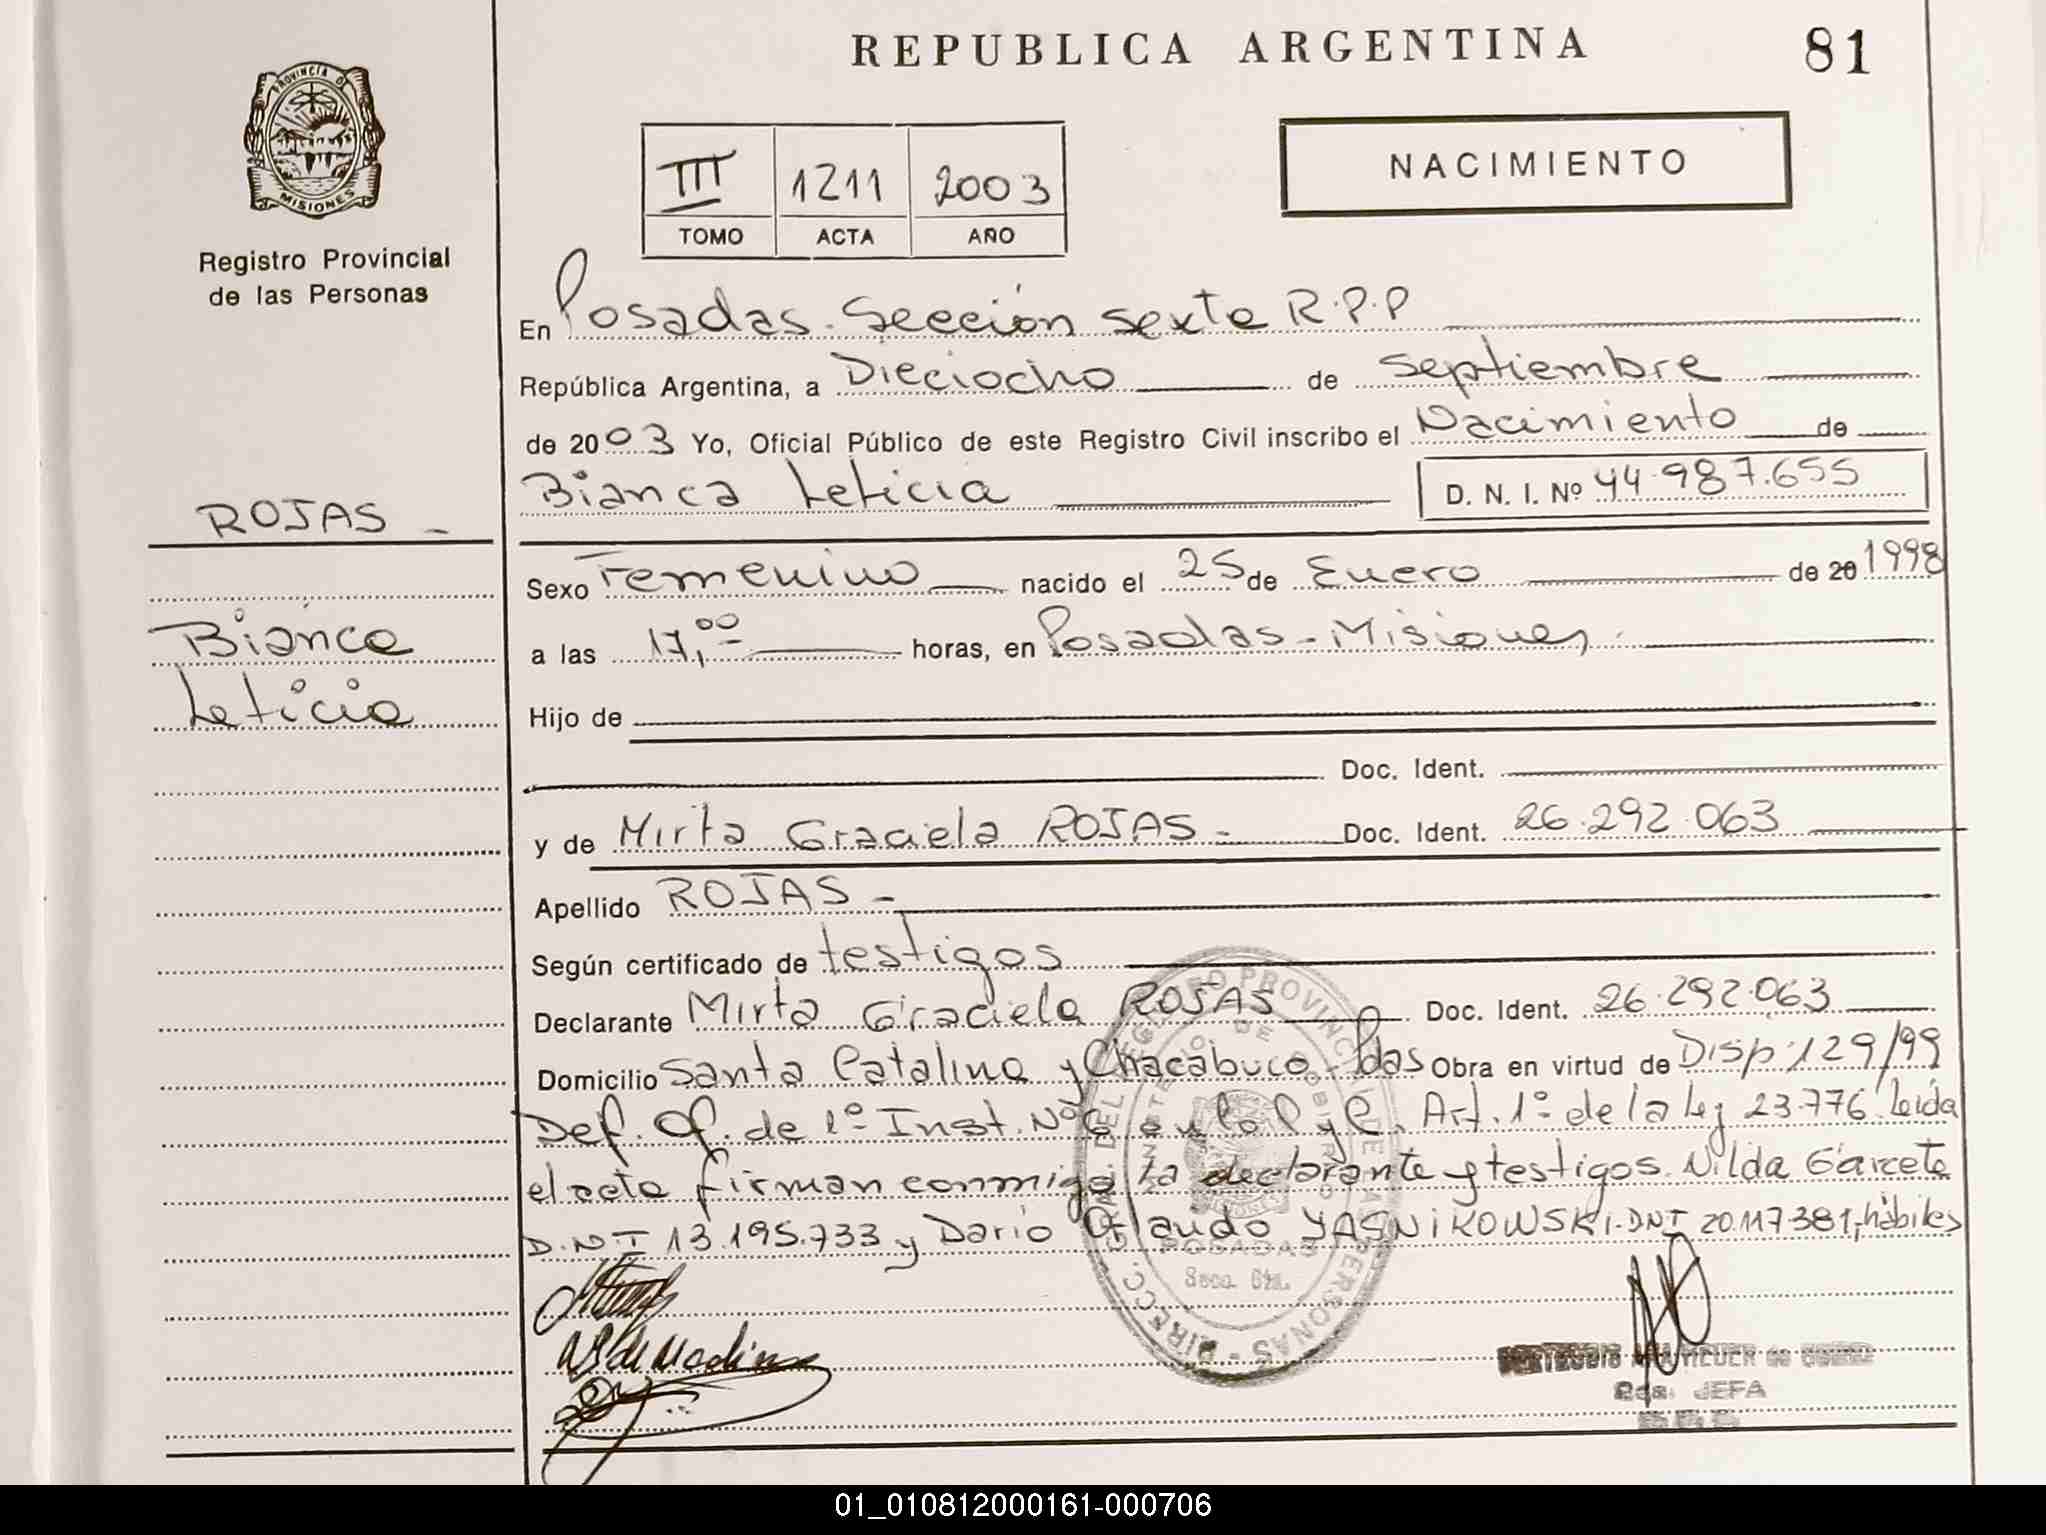 REPUBLICA ARGENTINA
81
PROVINCIA DE
MISIONES
Registro Provincial
de las Personas
III 1211 2003
TOMO ACTA AÑO
NACIMIENTO
En Posadas. Sección sexta R.P.P
República Argentina, a Dieciocho de septiembre
de 2003 Yo, Oficial Público de este Registro Civil inscribo el Nacimiento de
Bianca Leticia D. N. I. Nº 44.987.655
ROJAS -
Bianca
Leticia
Sexo Femenino nacido el 25 de Enero de 20 1998
a las 17,00 horas, en Posadas - Misiones.
Hijo de
Doc. Ident.
y de Mirta Graciela ROJAS - Doc. Ident. 26.292.063
Apellido ROJAS -
Según certificado de testigos
Declarante Mirta Graciela ROJAS Doc. Ident. 26.292.063
Domicilio Santa Catalina y Chacabuco - Pdas Obra en virtud de Disp. 129/99
Def. Of. de 1º Inst. Nº 6 en lo C y C. Art. 1º de la ley 23.776. Leida
el acta firman conmigo la declarante y testigos. Nilda Garcete
D.N.I 13.195.733 y Dario Orlando YASNIKOWSKI. DNI 20.117.381, hábiles
DIRECC. GRAL. DEL REGISTRO PROVINCIAL DE LAS PERSONAS
MINISTERIO DE GOBIERNO
MISIONES
POSADAS
Secc. 6ta.
JEFA
01_010812000161-000706